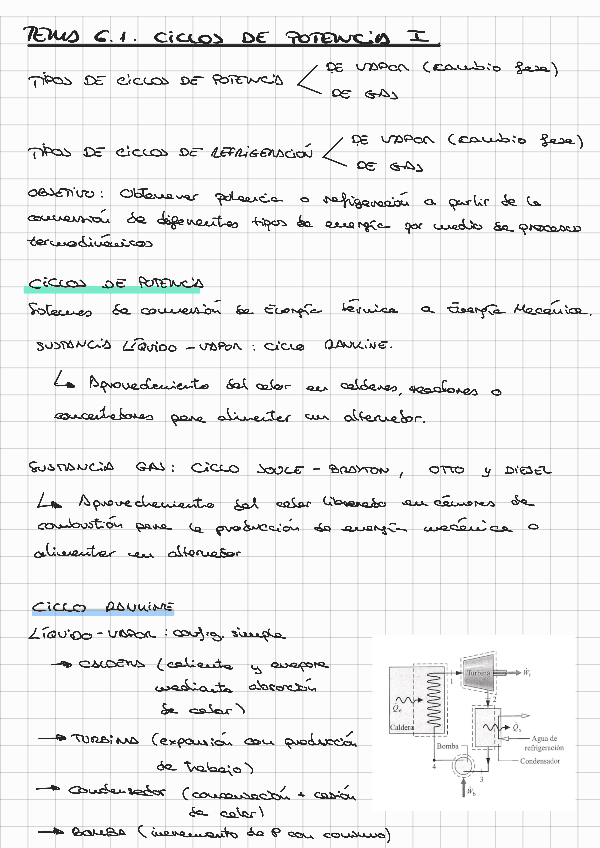 TEMA 6.1. CICLOS DE POTENCIA I
TIPOS DE CICLOS DE POTENCIA
DE VAPOR (cambio fase)
DE GAS
TIPOS DE CICLOS DE REFRIGERACIÓN
DE VAPOR (cambio fase)
DE GAS
OBJETIVO: Obtener potencia o refrigeración a partir de la
conversión de diferentes tipos de energía por medio de procesos
termodinámicos
CICLOS DE POTENCIA
Sistemas de conversión de Energía térmica a Energía Mecánica.
SUSTANCIA LÍQUIDO-VAPOR: CICLO RANKINE.
Aprovechamiento del calor en calderas, reactores o
concentradores para alimentar un alternador.
SUSTANCIA GAS: CICLO JOULE-BRAYTON, OTTO y DIESEL
Aprovechamiento del calor liberado en cámaras de
combustión para la producción de energía mecánica o
alimentar un alternador
CICLO RANKINE
LÍQUIDO-VAPOR: config. simple
→ CALDERA (calienta y evapora
mediante absorción
de calor)
→ TURBINA (expansión con producción
de trabajo)
→ Condensador (condensación + cesión
de calor)
→ BOMBA (incremento de P con consumo)
Turbina
Ẇt
1
2
Q̇e
Caldera
Q̇s
Agua de
refrigeración
Bomba
Condensador
4
3
Ẇb